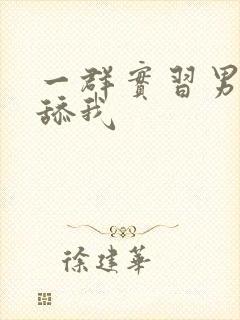 一群實習男
舔我
徐建華